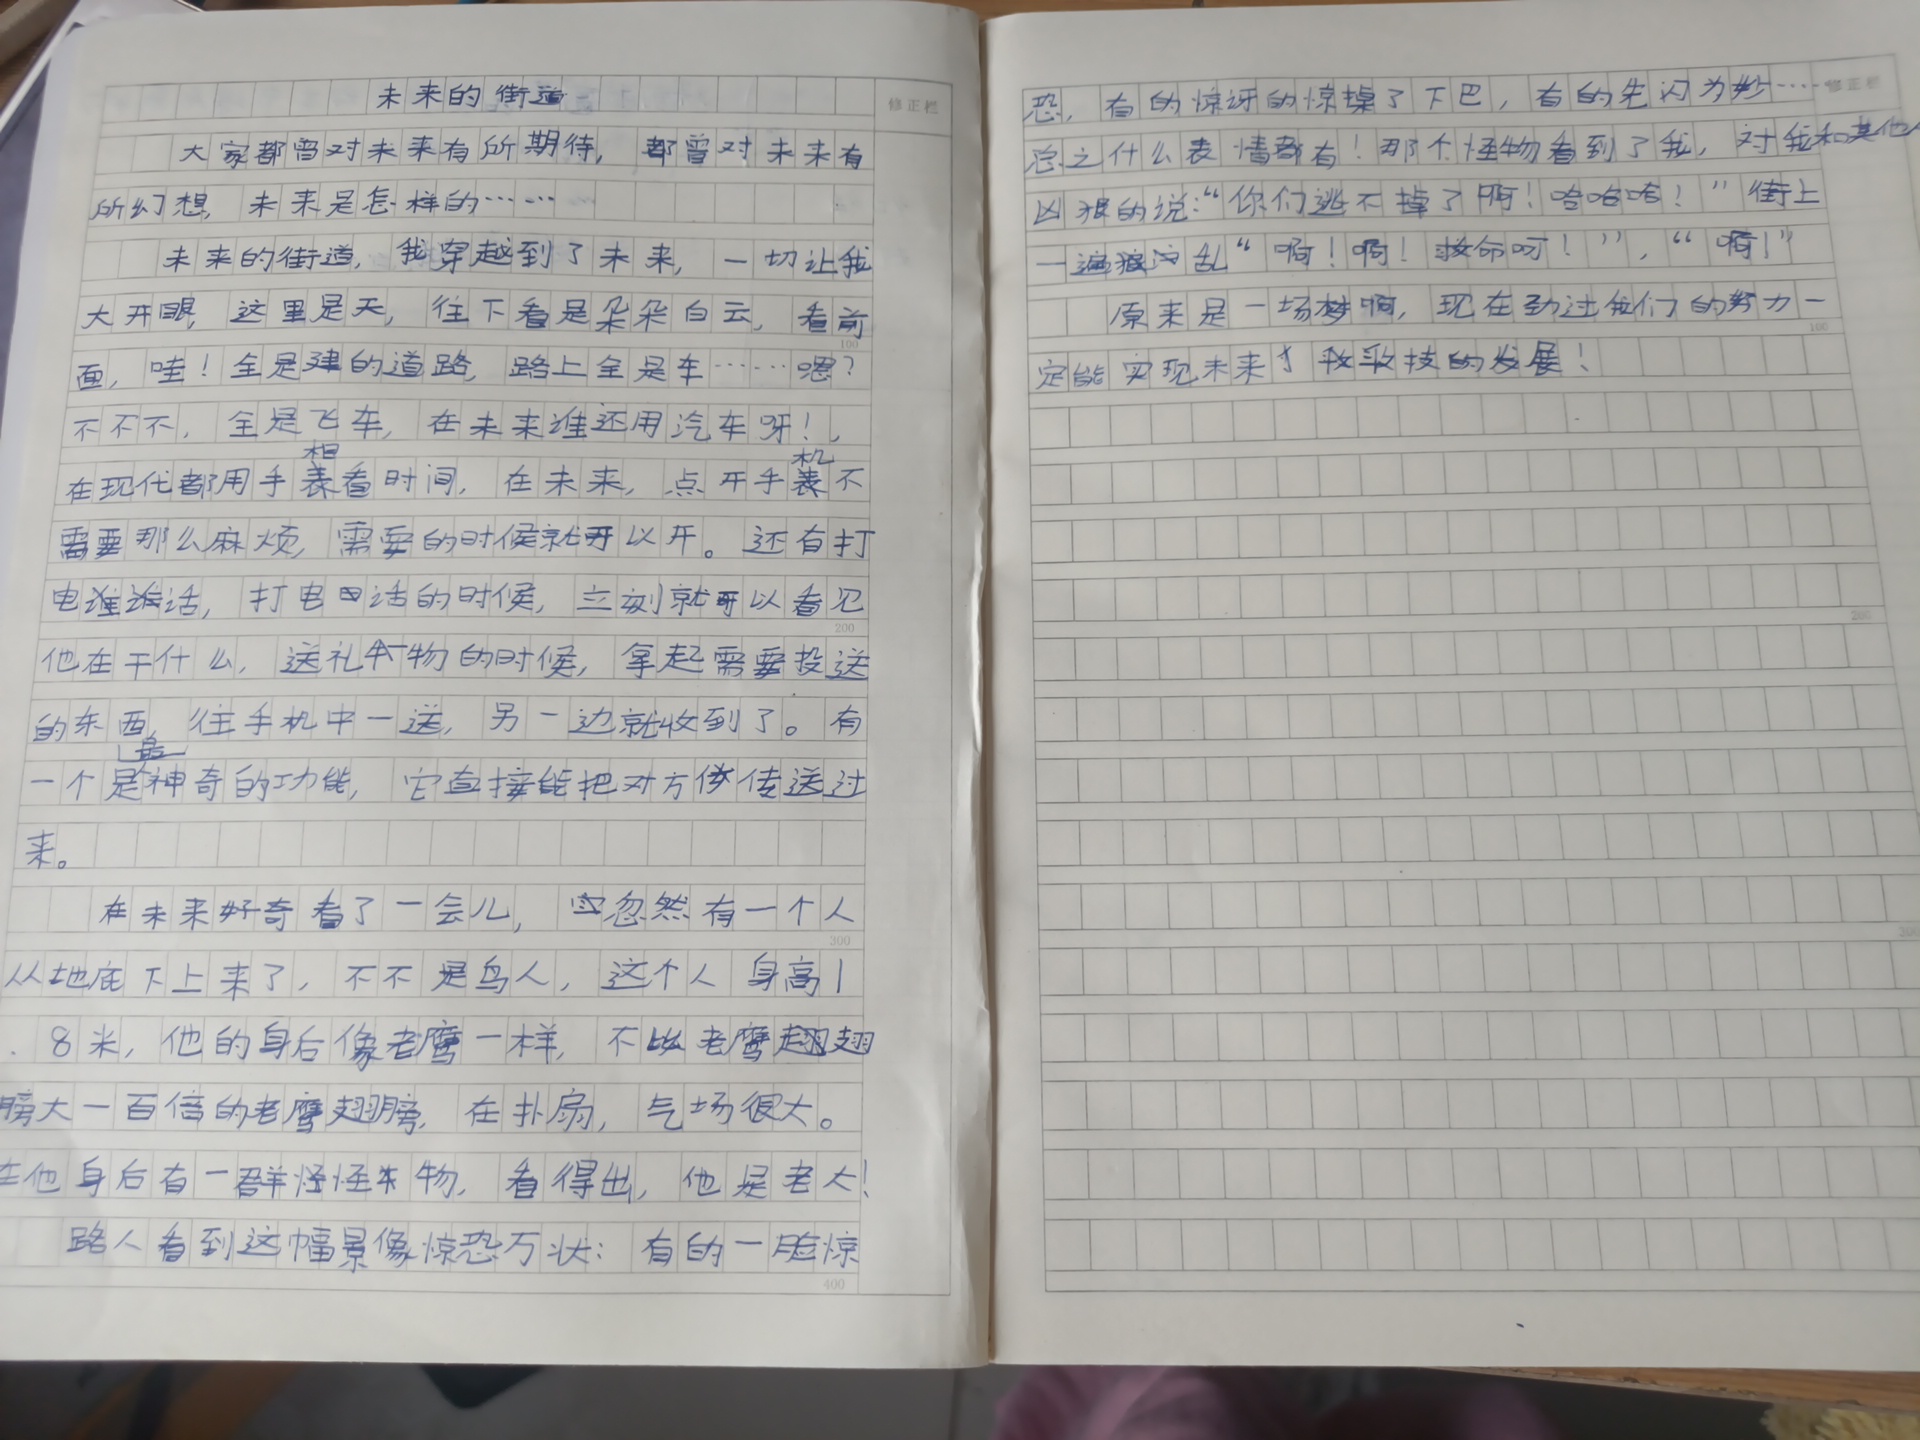 未来的街道
修正栏
大家都曾对未来有所期待，都曾对未来有
所幻想，未来是怎样的……
未来的街道，我穿越到了未来，一切让我
大开眼，这里是天，往下看是朵朵白云，看前
100
面，哇！全是建的道路，路上全是车……嗯？
不不不，全是飞车，在未来谁还用汽车呀！，
相 机
在现代都用手表看时间，在未来，点开手表不
需要那么麻烦，需要的时候就可以开。还有打
电话，打电话的时候，立刻就可以看见
200
他在干什么，送礼物的时候，拿起需要投送
的东西，往手机中一送，另一边就收到了。有
最
一个是神奇的功能，它直接能把对方传送过
来。
在未来好奇看了一会儿，忽然有一个人
300
从地底下上来了，不不是鸟人，这个人身高1
.8米，他的身后像老鹰一样，不比老鹰翅
膀大一百倍的老鹰翅膀，在扑扇，气场很大。
在他身后有一群怪怪物，看得出，他是老大！
路人看到这幅景像惊恐万状：有的一脸惊
400
恐，有的惊讶的惊掉了下巴，有的先闪为妙……
修正栏
总之什么表情都有！那个怪物看到了我，对我和其他人
凶狠的说：“你们逃不掉了啊！哈哈哈！”街上
一遍狼 乱“啊！啊！救命呀！”，“啊！”
原来是一场梦啊，现在 过我们的努力一
100
定能实现未来 技的发展！
200
300